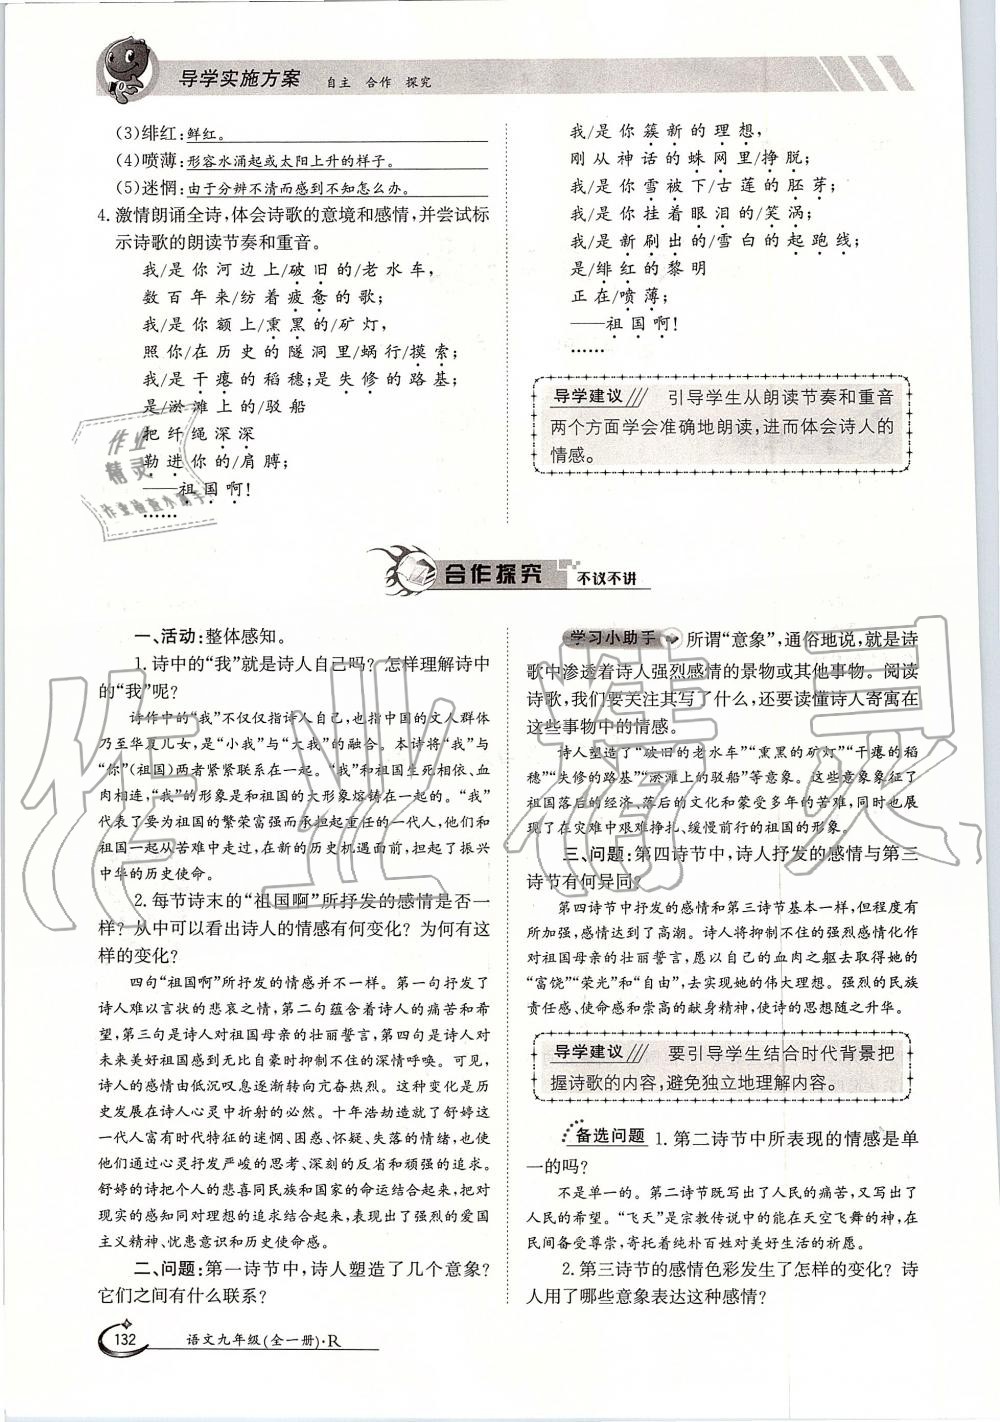 导学实施方案 自主 合作 探究
(3)绯红:鲜红。
(4)喷薄:形容水涌起或太阳上升的样子。
(5)迷惘:由于分辨不清而感到不知怎么办。
4. 激情朗诵全诗,体会诗歌的意境和感情,并尝试标
示诗歌的朗读节奏和重音。
我/是你河边上/破旧的/老水车,
数百年来/纺着疲惫的歌;
我/是你额上/熏黑的/矿灯,
照你/在历史的隧洞里/蜗行/摸索;
我/是干瘪的稻穗;是失修的路基;
是/淤滩上的/驳船
把纤绳深深
勒进你的/肩膊;
——祖国啊!
……
我/是你簇新的理想,
刚从神话的蛛网里/挣脱;
我/是你雪被下/古莲的胚芽;
我/是你挂着眼泪的/笑涡;
我/是新刷出的/雪白的起跑线;
是/绯红的黎明
正在/喷薄;
——祖国啊!
……
导学建议 引导学生从朗读节奏和重音
两个方面学会准确地朗读,进而体会诗人的
情感。
合作探究 不议不讲
一、活动:整体感知。
1. 诗中的“我”就是诗人自己吗?怎样理解诗中
的“我”呢?
诗作中的“我”不仅仅指诗人自己,也指中国的文人群体
乃至华夏儿女,是“小我”与“大我”的融合。本诗将“我”与
“你”(祖国)两者紧紧联系在一起。“我”和祖国生死相依、血
肉相连,“我”的形象是和祖国的大形象熔铸在一起的。“我”
代表了要为祖国的繁荣富强而承担起重任的一代人,他们和
祖国一起从苦难中走过,在新的历史机遇面前,担起了振兴
中华的历史使命。
2. 每节诗末的“祖国啊”所抒发的感情是否一
样?从中可以看出诗人的情感有何变化?为何有这
样的变化?
四句“祖国啊”所抒发的情感并不一样。第一句抒发了
诗人难以言状的悲哀之情,第二句蕴含着诗人的痛苦和希
望,第三句是诗人对祖国母亲的壮丽誓言,第四句是诗人对
未来美好祖国感到无比自豪时抑制不住的深情呼唤。可见,
诗人的感情由低沉叹息逐渐转向亢奋热烈。这种变化是历
史发展在诗人心灵中折射的必然。十年浩劫造就了舒婷这
一代人富有时代特征的迷惘、困惑、怀疑、失落的情绪,也使
他们通过心灵抒发严峻的思考、深刻的反省和顽强的追求。
舒婷的诗把个人的悲喜同民族和国家的命运结合起来,把对
现实的感知同对理想的追求结合起来,表现出了强烈的爱国
主义精神、忧患意识和历史使命感。
二、问题:第一诗节中,诗人塑造了几个意象?
它们之间有什么联系?
学习小助手 所谓“意象”,通俗地说,就是诗
歌中渗透着诗人强烈感情的景物或其他事物。阅读
诗歌,我们要关注其写了什么,还要读懂诗人寄寓在
这些事物中的情感。
诗人塑造了“破旧的老水车”“熏黑的矿灯”“干瘪的稻
穗”“失修的路基”“淤滩上的驳船”等意象。这些意象象征了
祖国落后的经济、落后的文化和蒙受多年的苦难,同时也展
现了在灾难中艰难挣扎、缓慢前行的祖国的形象。
三、问题:第四诗节中,诗人抒发的感情与第三
诗节有何异同?
第四诗节中抒发的感情和第三诗节基本一样,但程度有
所加强,感情达到了高潮。诗人将抑制不住的强烈感情化作
对祖国母亲的壮丽誓言,愿以自己的血肉之躯去实现她的
“富饶”“荣光”和“自由”,这就是她的伟大理想。强烈的民族
责任感、使命感和崇高的献身精神,使诗的思想随之升华。
导学建议 要引导学生结合时代背景把
握诗歌的内容,避免独立地理解内容。
备选问题 1. 第二诗节中所表现的情感是单
一的吗?
不是单一的。第二诗节既写出了人民的痛苦,又写出了
人民的希望。“飞天”是宗教传说中的能在天空飞舞的神,在
民间备受尊崇,寄托着纯朴百姓对美好生活的祈愿。
2. 第三诗节的感情色彩发生了怎样的变化?诗
人用了哪些意象表达这种感情?
132 语文九年级(全一册)·R
作业
精灵
作业检查小助手
作业精灵